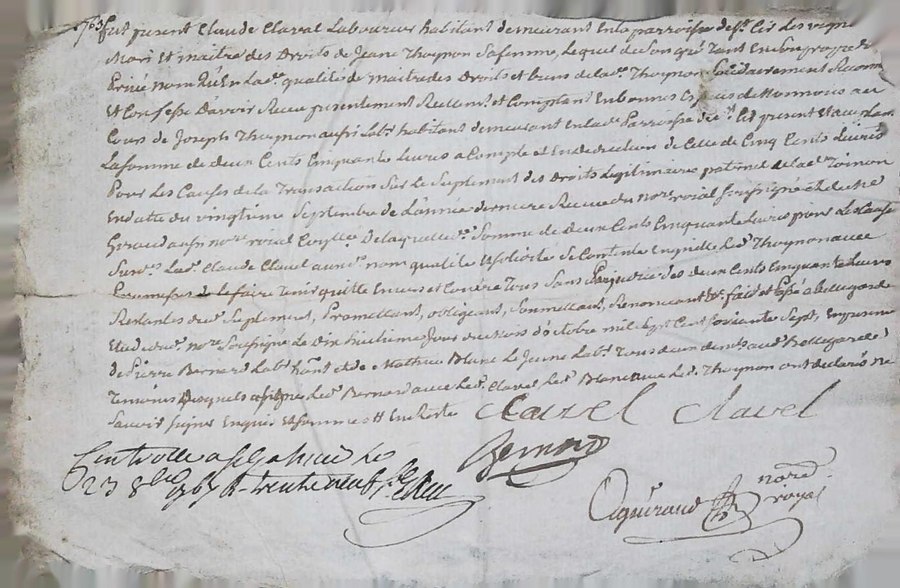 1763 fut present Claude Claval Laboureur habitant demeurant En la parroisse de st Cir Les vigne
Mari et maitre des Droits de Jeane Thoynon Safemme, Lequel de Son gré Tant En Son propre &
Privé nom qu'En Lad. qualité de Maitre des Droits et biens de lad. Thoynon Solidairement Reconn
Et Confesse Davoir Recu presentement Reellemt et Comptant En bonnes Especes de Monnoies au
Cours de Joseph Thoynon aussi Labr habitant demeurant En lad. Parroisse de st Cir present Et acceptant
La Somme de deux Cents Cinquante Livres a Compte et En deduction de Celle de Cinq Cents Livres
Pour Les Causes de la Transaction Sur Le Suplement des Droits Legitimaires paternel de lad. Toinon
En datte du vingtieme Septembre de L'année derniere Recue du nore roial Soussigné et de Me
Giraud aussi nore roial De laquelle de. Somme de deux Cents Cinquante Livres pour Les Causes
Susd. Led. Claude Clavel aux d. nom qualité et Solidité Se Contente En quitte Led. Thoynon avec
Promesse de Le faire Tenir quitte Envers et Contre Tous Sans Prejudice des deux Cents Cinquante Livres
Restantes dud. Suplement, Promettant, obligeant, Soumettant, Renonceant &c. fait et Passé a Bellegarde
Etude du d. nore Soussigné Le Dix huitieme Jour du mois d'octobre mil Sept Cent Soixante Sept, En presence
de Pierre Bernard Labr hant et de Mathieu Blanc Le Jeune Labr Tous deux demts aud. Bellegarde
Temoins Desquels Led. Bernard avec Led. Clavel Led. Blanc avec Led. Thoynon ont declaré ne
Sauoir Signer Enquis Et Sommé
Clavel Clavel
Bernard
Controllé a st Galmier le
23 8bre 1767 R. trente neuf s.
Aguiraud nore
royal